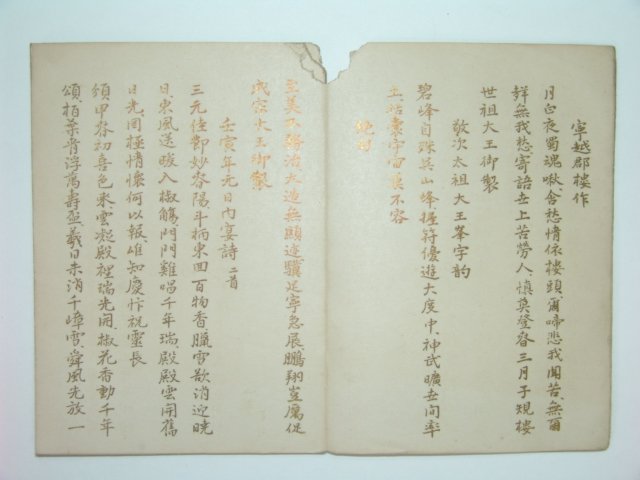 寧越郡樓作
月白夜蜀魂啾含愁情依樓頭爾啼悲我聞苦無爾
聲無我愁寄語世上苦勞人愼莫登春三月子規樓
世祖大王御製
敬次太祖大王峯字韵
碧峰自珠英山峰握符優遊大度中神武曠世間率
土諸囊宇宙莫不容
絶句
至美不務治大道無願速驥足寧急展鵬翔豈厲促
成宗大王御製
壬寅年元日內宴詩 二首
三元佳節妙春陽斗柄東回百物香臘雪欲消迎曉
日東風送暖入椒觴門門雞唱千年瑞殿殿雲開舊
日光同極情懷何以報唯知慶忭祝靈長
頒甲春初喜色來雲凝殿裡瑞光開椒花香動千年
頌柏葉靑浮萬壽盃羲日未消千嶂雪舜風先放一